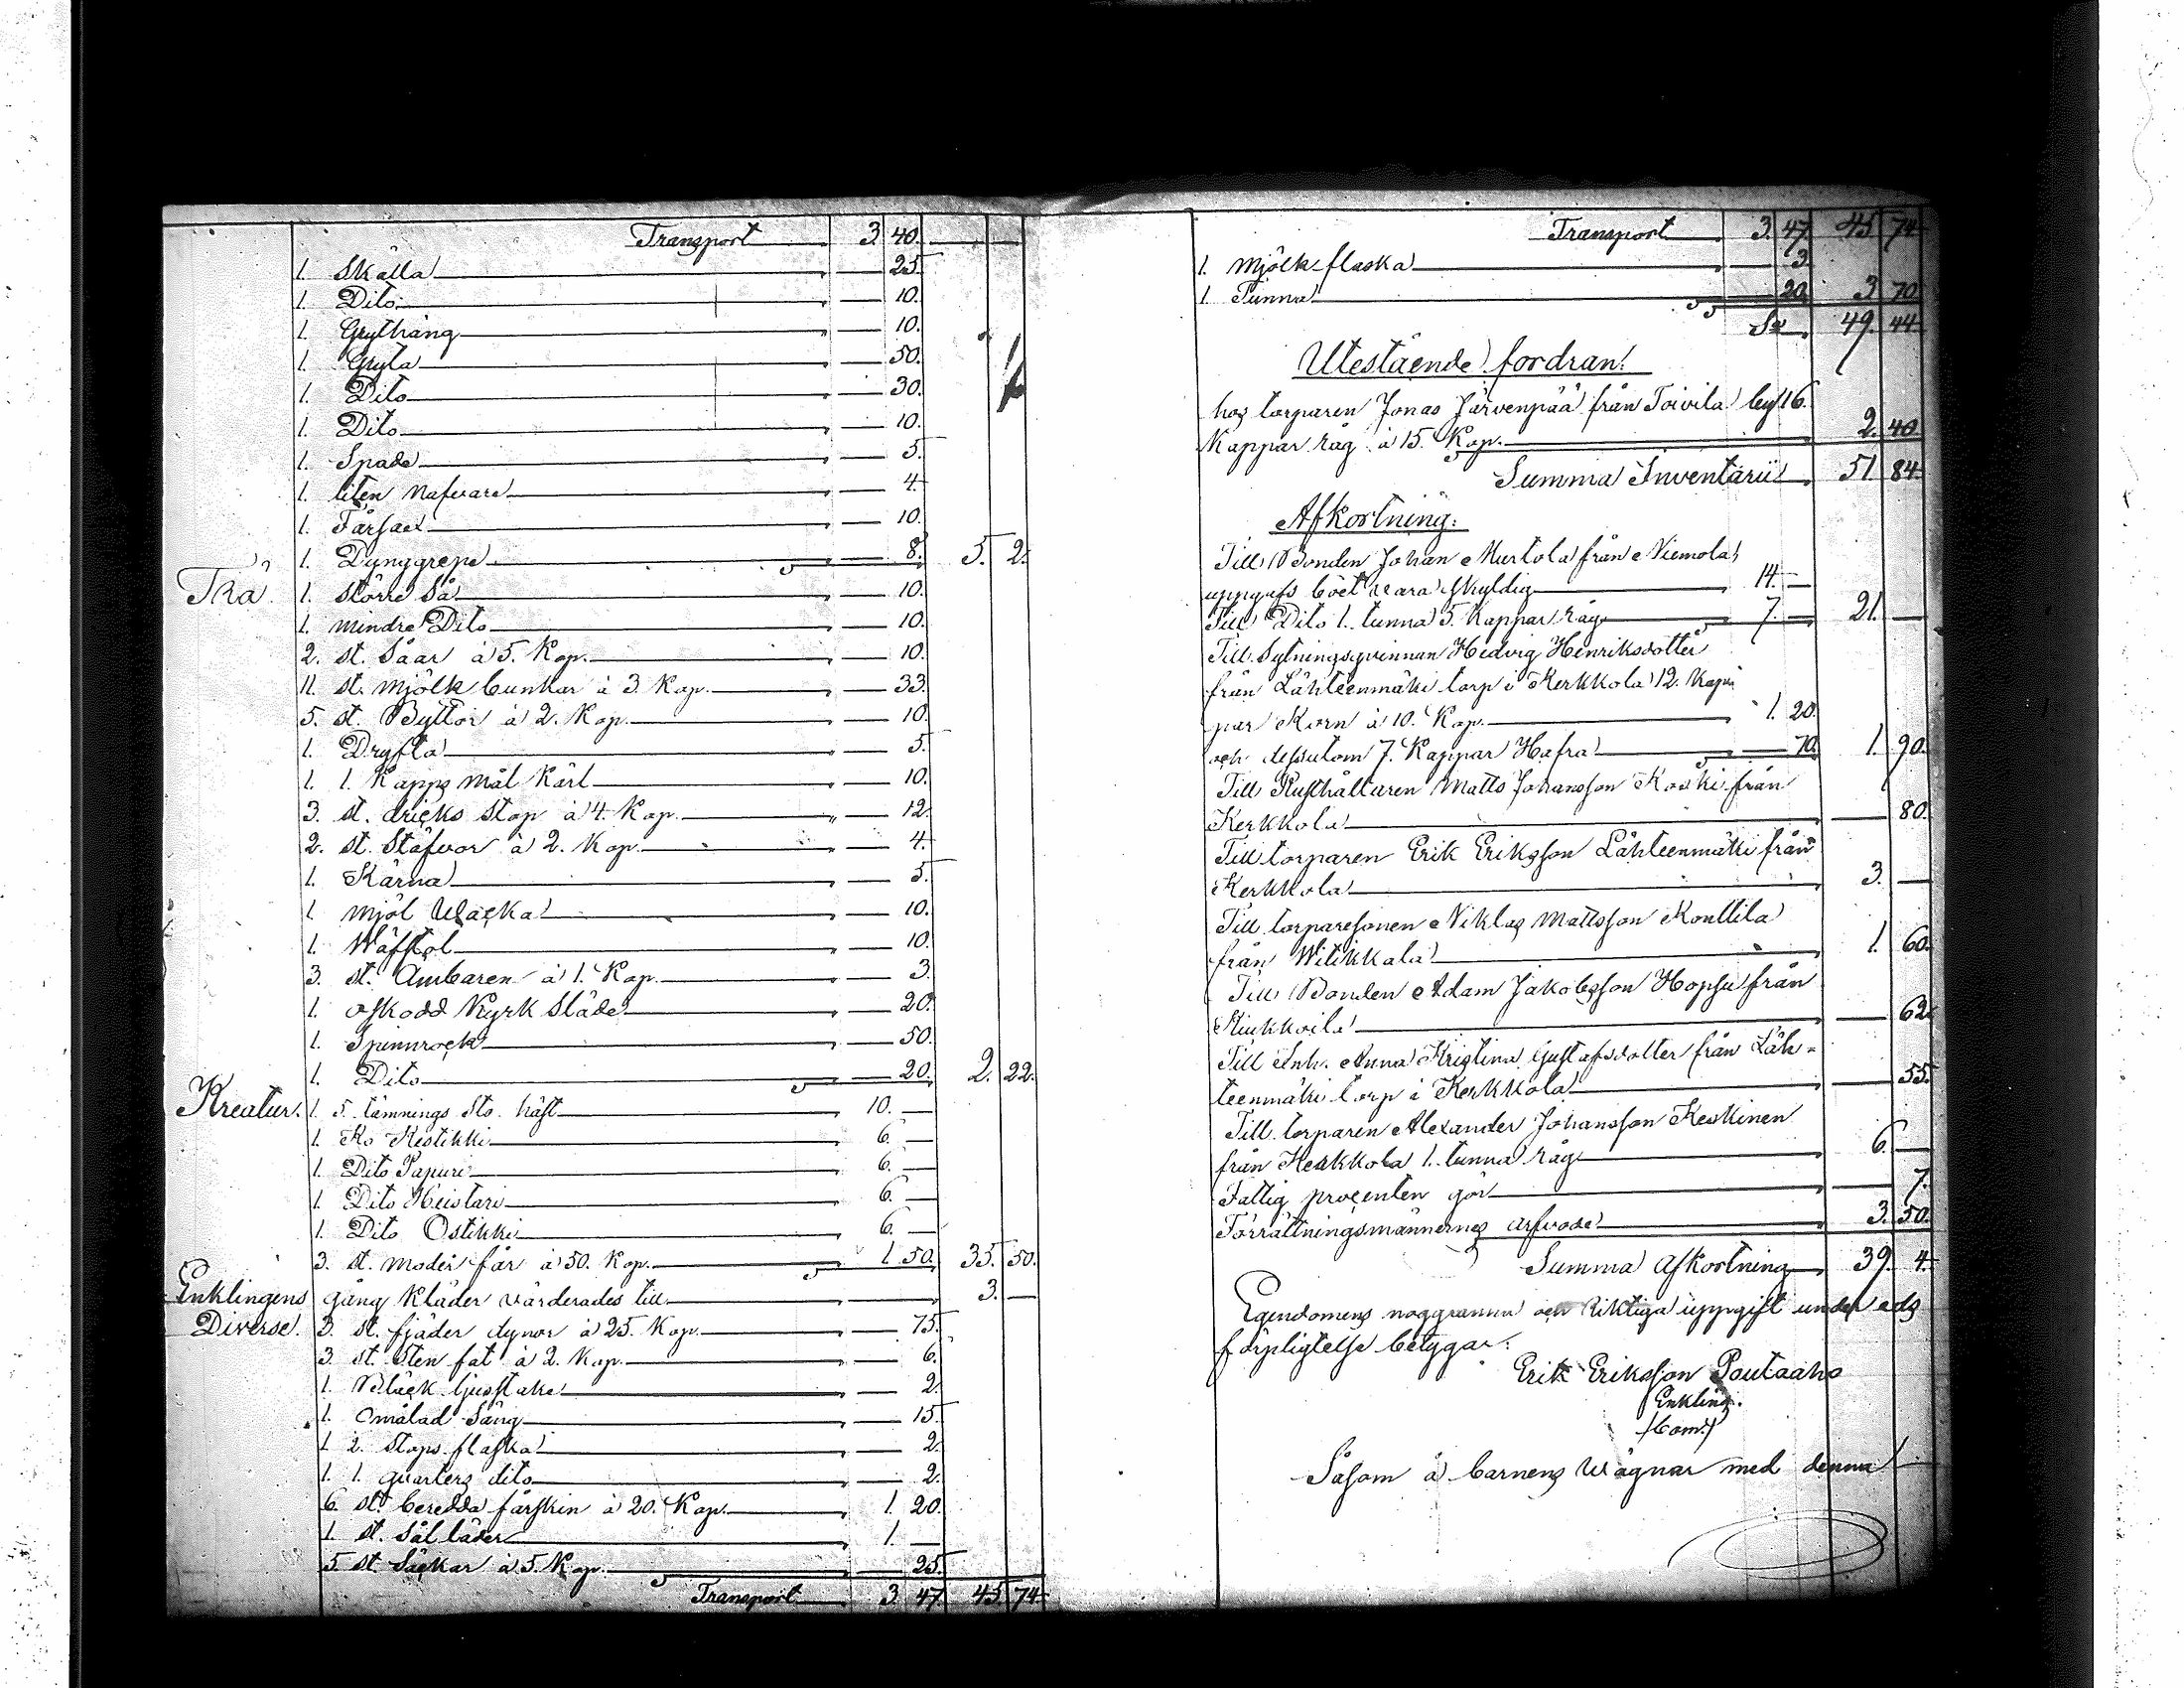 Transport 3. 40.
1. Skälla 25
1. Dito 10.
1. Grythäng 10.
1. Gryta 50.
1. Dito 30.
1. Dito 10.
1. Spade 5.
1. liten Nafvare 4.
1. Fårsax 10.
1. Dynggrepe 8. 5. 2.
Trä. 1. större Så 10.
1. mindre Dito 10.
2. st. Såar à 5. Kop. 10.
11. st. mjölk bunkar à 3 Kop. 33.
5. st. Byttor à 2. Kop. 10.
1. Dryfta 5.
1. 1. Kapps mål Kärl 10.
3. st. dricks stop à 4. Kop. 12.
2. st. Stäfvor à 2. Kop. 4.
1. Kärna 5.
1. mjöl Wacka 10.
1. Wäfstol 10.
3. st. Ämbaren à 1. Kop. 3.
1. oskodd Kyrk Släde 20.
1. Spinnrock 50.
1. Dito 20. 2. 22.
Kreatur. 1. 5. tämnings Sto. häst 10. —
1. Ko Kestikki 6. —
1. Dito Papuri 6. —
1. Dito Heistari 6. —
1. Dito Ostikki 6. —
3. st. moder får à 50. Kop. 1. 50. 35. 50.
Enklingens gång Kläder värderades till 3. —
Diverse. 3. st. fjäder dynor à 25. Kop. 75.
3. st. Sten fat à 2. Kop. 6.
1. Bläck ljusstake 2.
1. omålad Säng 15.
1. 2. Stops flaska 2.
1. 1. quarters dito 2.
6. st. beredda fårskin à 20. Kop. 1. 20.
1. st. Sål läder 1. —
5 st Säckar à 5. Kop. 25.
Transport 3. 47. 45. 74.
Transport 3. 47. 45 74.
1. Mjölk flaska 3.
1. Tunna 20. 3. 70.
Sa 49. 44.
Utestående fordran.
hos torparen Jonas Järvenpää från Toivila by 16.
Kappar råg à 15. Kop. 2. 40
Summa Inventarii 51. 84.
Afkortning.
Till Bonden Johan Murtola från Niemola
uppgafs boet vara skyldig 14. —
Till Dito 1. tunna 5. Kappar råg 7. — 21. —
Till Sytningsqvinnan Hedvig Henriksdotter
från Lähteenmäki torp i Kerkkola 12. Kap-
par Korn à 10. Kop. 1. 20.
och dessutom 7. Kappar Hafra 70. 1. 90.
Till Rusthållaren Matts Johansson Koski från
Kerkkola 80.
Till torparen Erik Eriksson Lähteenmäki från
Kerkkola 3. —
Till torparesonen Niklas Mattsson Konttila
från Witikkala 1. 60.
Till Bonden Adam Jakobsson Hopsu från
Kiukkoila 62.
Till Inh. Anna Kristina Gustafsdotter från Läh-
teenmäki torp i Kerkkola 55.
Till torparen Alexander Johansson Keskinen
från Kerkkola 1. tunna råg 6. —
Fattig procenten gör 7.
Förrättningsmännernes arfvode 3. 50.
Summa Afkortning 39. 4.
Egendomens noggranna och riktiga uppgift under eds
förpligtelse betygar:
Erik Eriksson Poutaaho
Enkling.
Såsom å barnens wägnar med denna